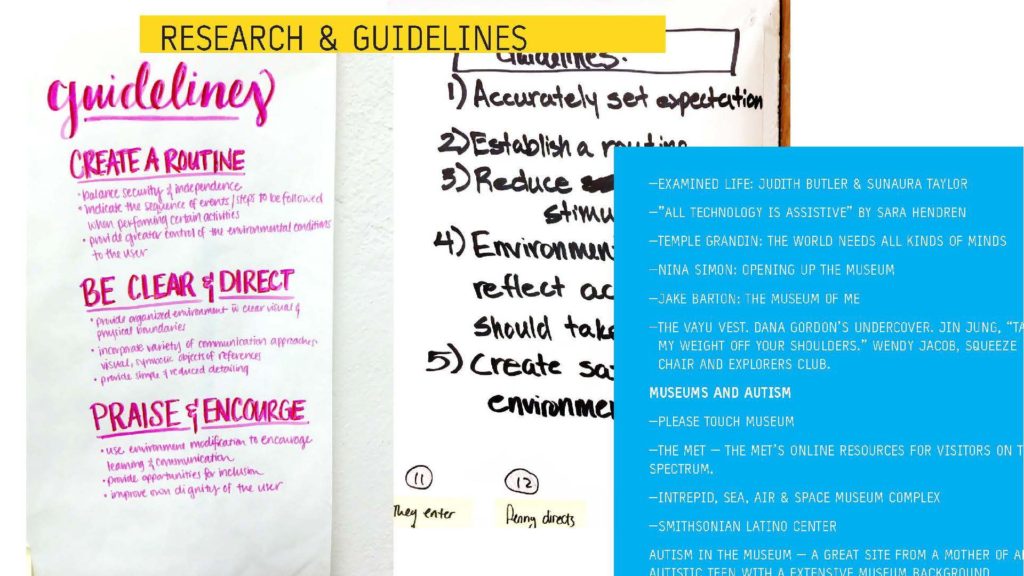 RESEARCH & GUIDELINES
guidelines
CREATE A ROUTINE
• balance security & independence
• indicate the sequence of events/steps to be followed
when performing certain activities
• provide greater control of the environmental conditions
to the user
BE CLEAR & DIRECT
• provide organized environment w clear visual &
physical boundaries
• incorporate variety of communication approaches-
visual, symbolic objects of references
• provide simple & reduced detailing
PRAISE & ENCOURGE
• use environment modification to encourage
learning & communication
• provide opportunities for inclusion
• improve own dignity of the user
Guidelines:
1) Accurately set expectation
2) Establish a routine
3) Reduce
stimu
4) Environmen
reflect ac
should tak
5) Create sa
environme
11
They enter
12
Penny directs
—EXAMINED LIFE: JUDITH BUTLER & SUNAURA TAYLOR
—"ALL TECHNOLOGY IS ASSISTIVE" BY SARA HENDREN
—TEMPLE GRANDIN: THE WORLD NEEDS ALL KINDS OF MINDS
—NINA SIMON: OPENING UP THE MUSEUM
—JAKE BARTON: THE MUSEUM OF ME
—THE VAYU VEST. DANA GORDON'S UNDERCOVER. JIN JUNG, "TA
MY WEIGHT OFF YOUR SHOULDERS." WENDY JACOB, SQUEEZE
CHAIR AND EXPLORERS CLUB.
MUSEUMS AND AUTISM
—PLEASE TOUCH MUSEUM
—THE MET — THE MET'S ONLINE RESOURCES FOR VISITORS ON T
SPECTRUM.
—INTREPID, SEA, AIR & SPACE MUSEUM COMPLEX
—SMITHSONIAN LATINO CENTER
AUTISM IN THE MUSEUM — A GREAT SITE FROM A MOTHER OF A
AUTISTIC TEEN WITH A EXTENSIVE MUSEUM BACKGROUND